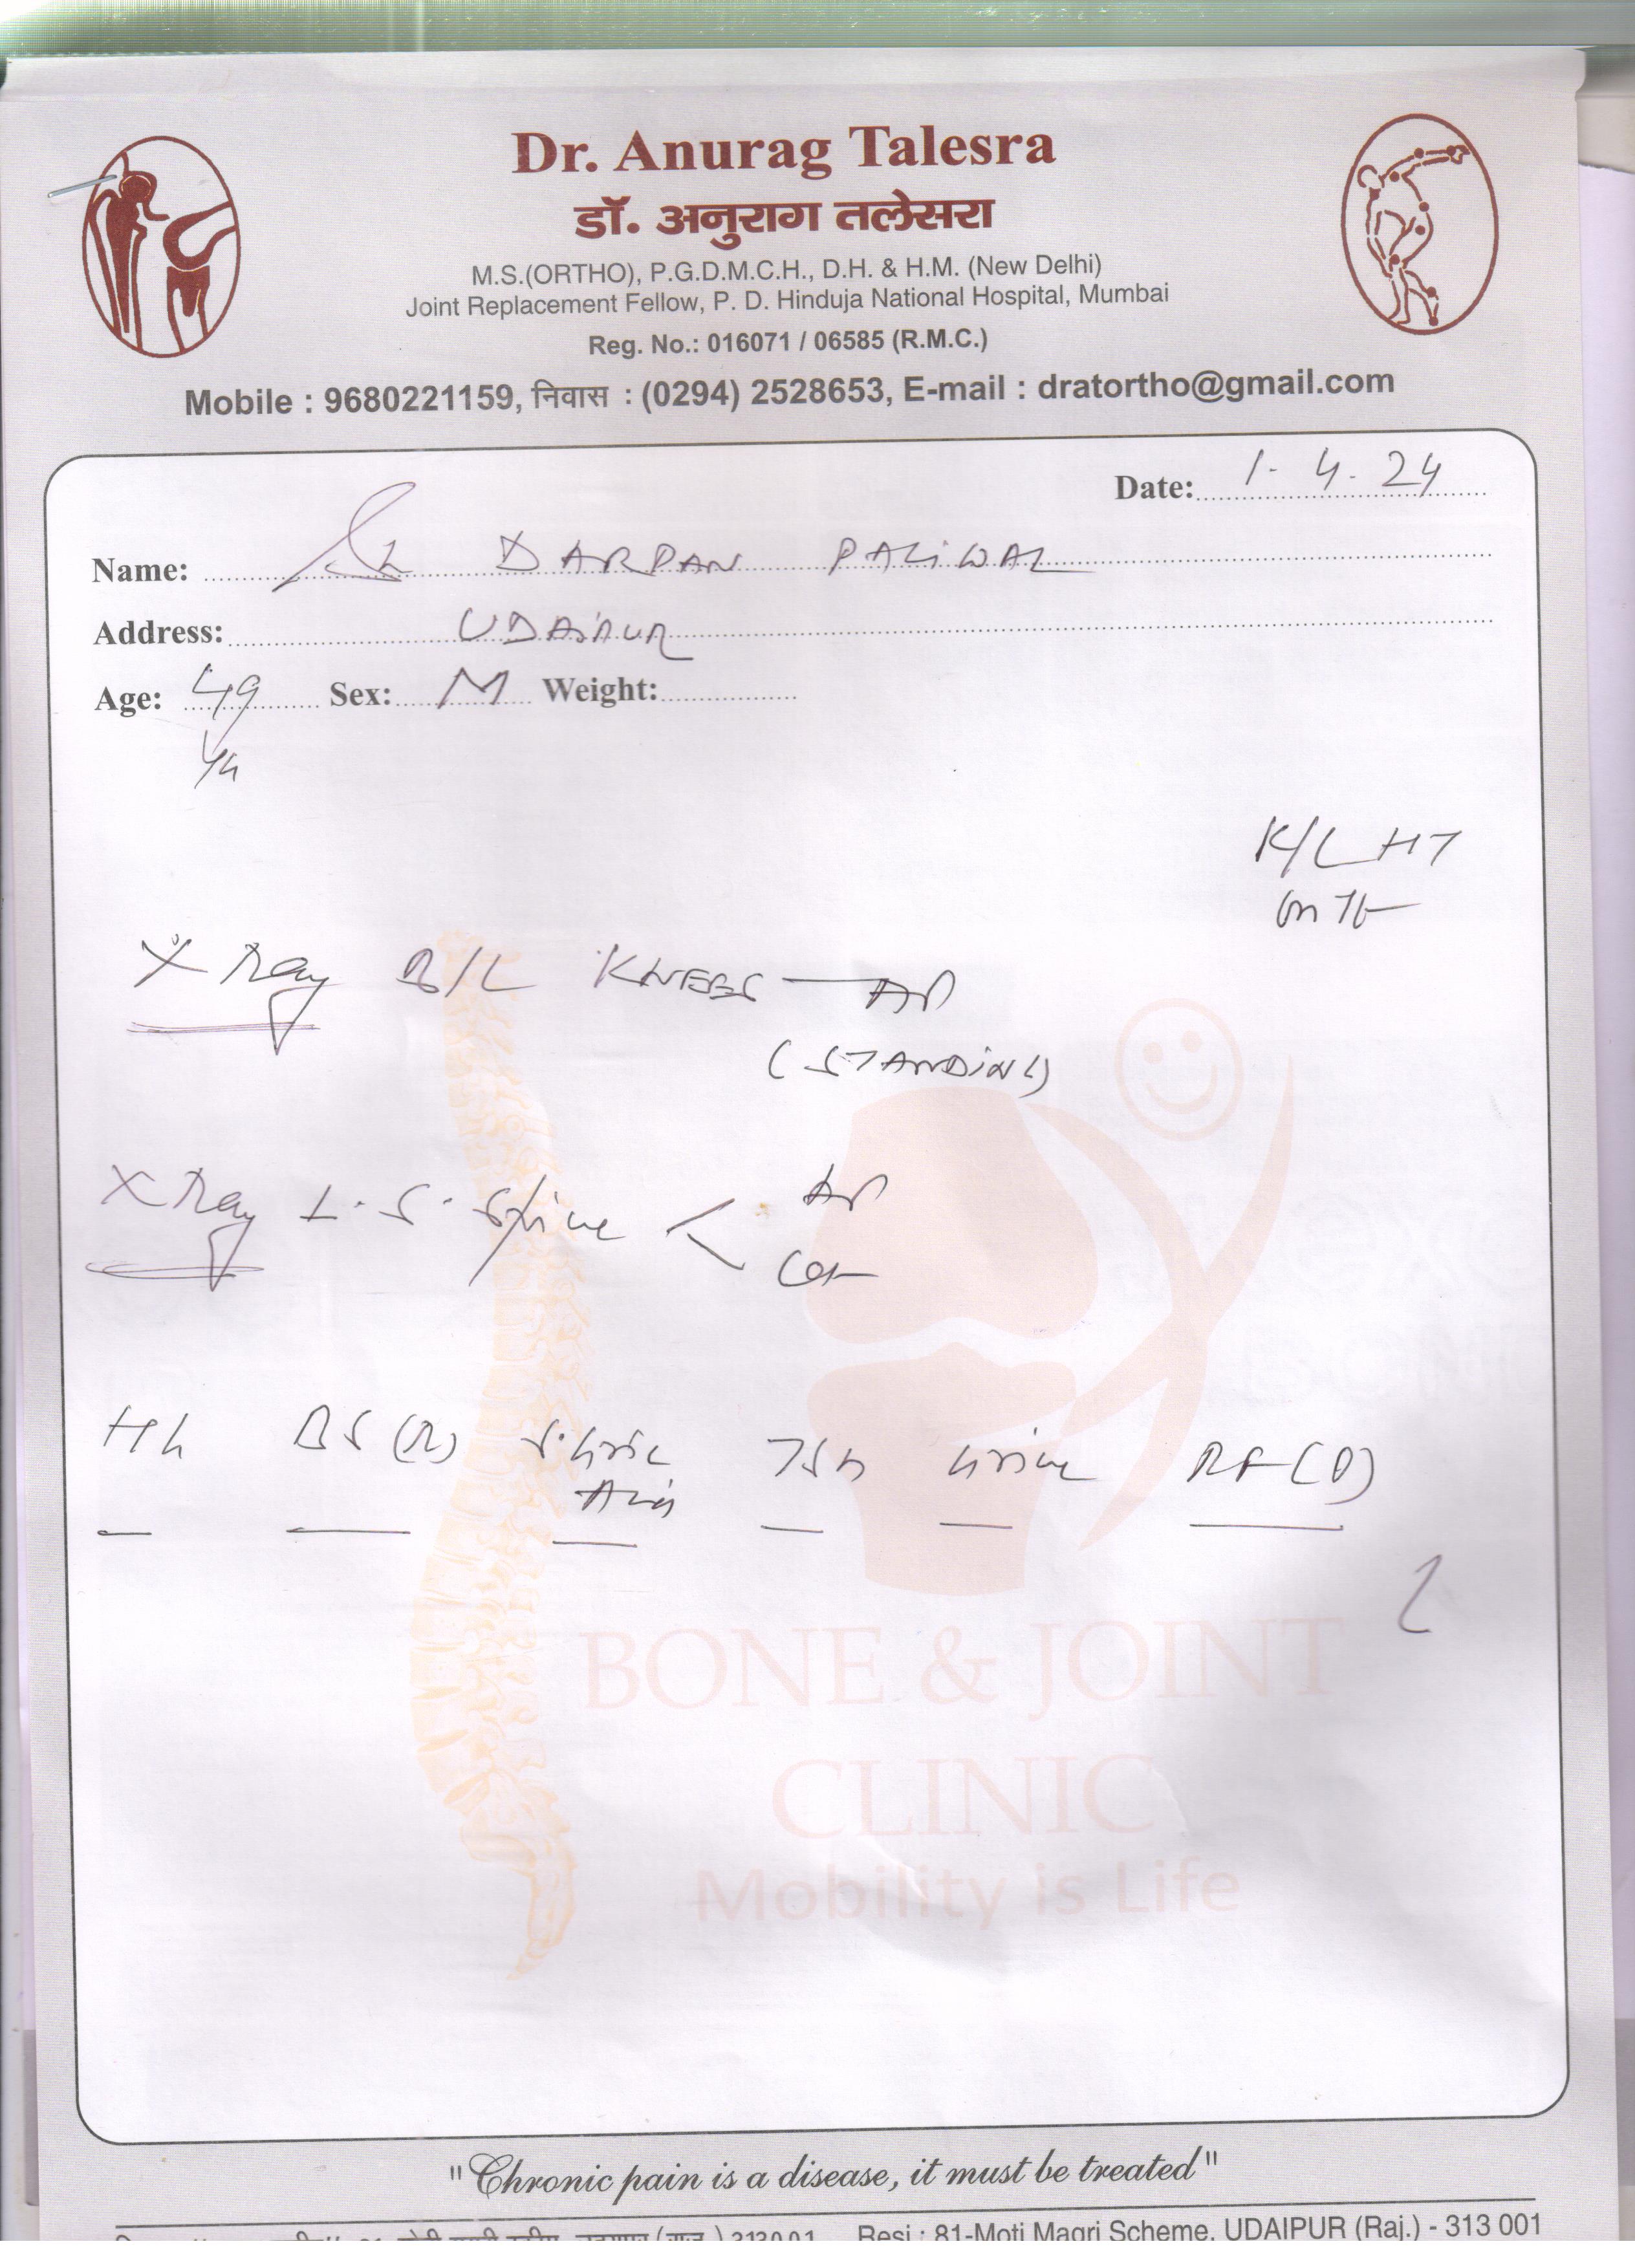 Dr. Anurag Talesra
डॉ. अनुराग तलेसरा
M.S.(ORTHO), P.G.D.M.C.H., D.H. & H.M. (New Delhi)
Joint Replacement Fellow, P. D. Hinduja National Hospital, Mumbai
Reg. No.: 016071 / 06585 (R.M.C.)
Mobile : 9680221159, निवास : (0294) 2528653, E-mail : dratortho@gmail.com
Date: 1.4.24
Name: DARPAN PALIWAL
Address: UDAIPUR
Age: 49 Sex: M Weight:
K/C HT
on
X Ray B/L KNEES — AP
(STANDING)
X Ray L.S. Spine < AP
Lat
Hb BS(R) S. Uric TSH Urine RF(Q)
Acid
BONE & JOINT
CLINIC
Mobility is Life
"Chronic pain is a disease, it must be treated"
Resi : 81-Moti Magri Scheme, UDAIPUR (Raj.) - 313 001